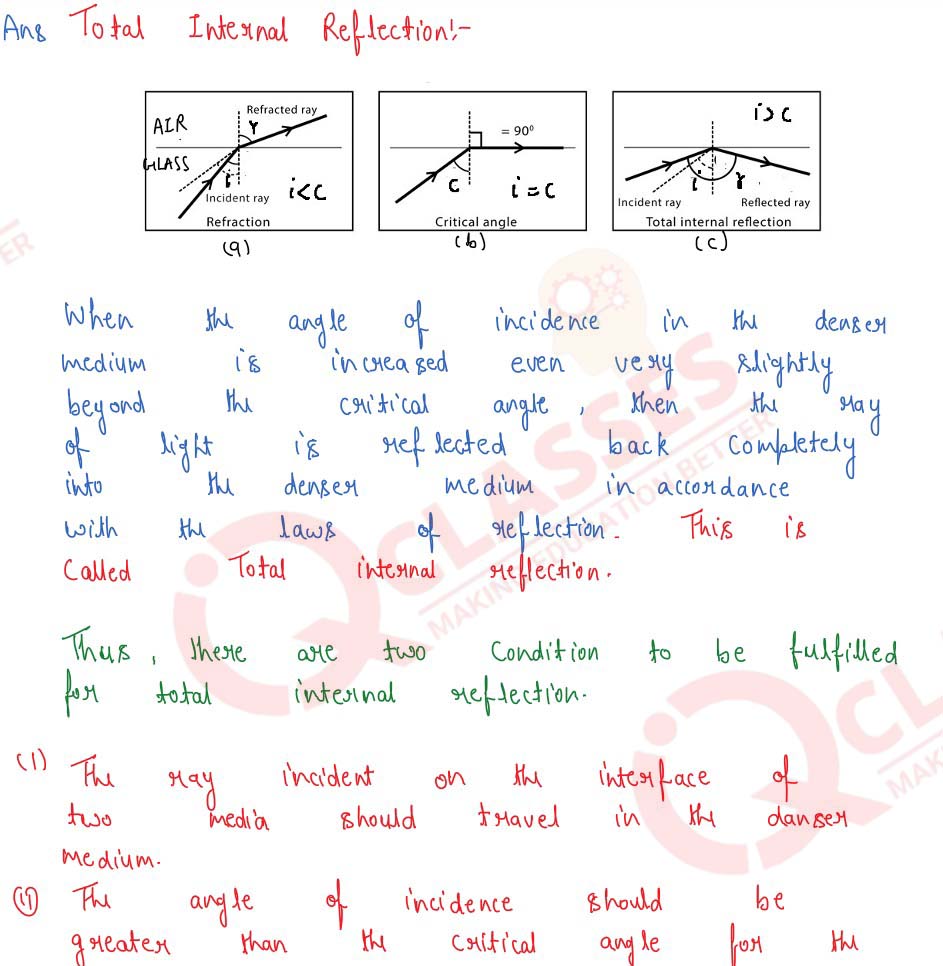 Ans Total Internal Reflection:-
AIR
GLASS
Refracted ray
r
i
Incident ray
i<c
Refraction
(a)
= 90⁰
C
i = c
Critical angle
(b)
i>c
i
r
Incident ray
Reflected ray
Total internal reflection
(c)
When the angle of incidence in the denser
medium is increased even very slightly
beyond the critical angle, then the ray
of light is reflected back completely
into the denser medium in accordance
with the laws of reflection. This is
Called Total internal reflection.
Thus, there are two Condition to be fulfilled
for total internal reflection.
(1) The ray incident on the interface of
two media should travel in the danser
medium.
(11) The angle of incidence should be
greater than the critical angle for the
QCLASSES
MAKING EDUCATION BETTER
QCL
MAK
ER